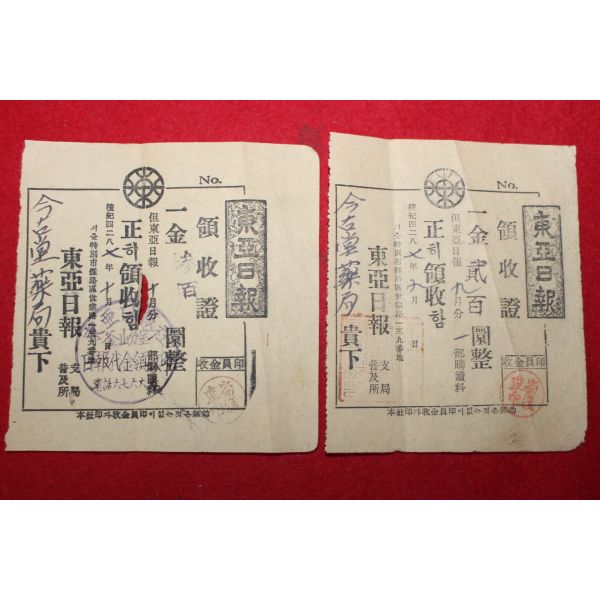 No.
東亞日報
領收證
一金 百圜整
但東亞日報十月分 部購讀料
正히領收함
檀紀四二八七年十月 日
서울特別市鍾路區世宗路一三九番地
東亞日報 支局 普及所
藥局貴下
收金員印
本社印가收金員印이없는것은無効
No.
東亞日報
領收證
一金貳百圜整
但東亞日報九月分一部購讀料
正히領收함
檀紀四二八七年九月 日
서울特別市鍾路區世宗路一三九番地
東亞日報 支局 普及所
藥局貴下
收金員印
本社印가收金員印이없는것은無効